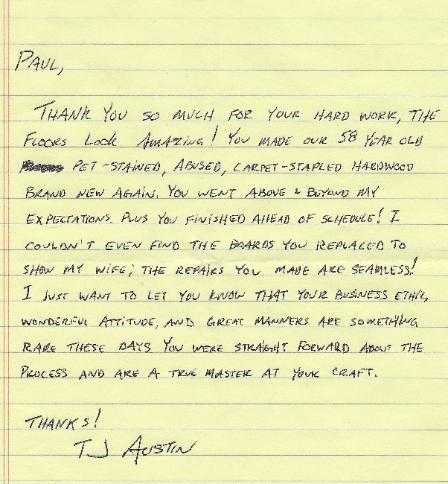 PAUL,
THANK YOU SO MUCH FOR YOUR HARD WORK, THE
FLOORS LOOK AMAZING! YOU MADE OUR 58 YEAR OLD
PET-STAINED, ABUSED, CARPET-STAPLED HARDWOOD
BRAND NEW AGAIN. YOU WENT ABOVE & BEYOND MY
EXPECTATIONS. PLUS YOU FINISHED AHEAD OF SCHEDULE! I
COULDN'T EVEN FIND THE BOARDS YOU REPLACED TO
SHOW MY WIFE; THE REPAIRS YOU MADE ARE SEAMLESS!
I JUST WANT TO LET YOU KNOW THAT YOUR BUSINESS ETHIC,
WONDERFUL ATTITUDE, AND GREAT MANNERS ARE SOMETHING
RARE THESE DAYS YOU WERE STRAIGHT FORWARD ABOUT THE
PROCESS AND ARE A TRUE MASTER AT YOUR CRAFT.
THANKS!
TJ AUSTIN